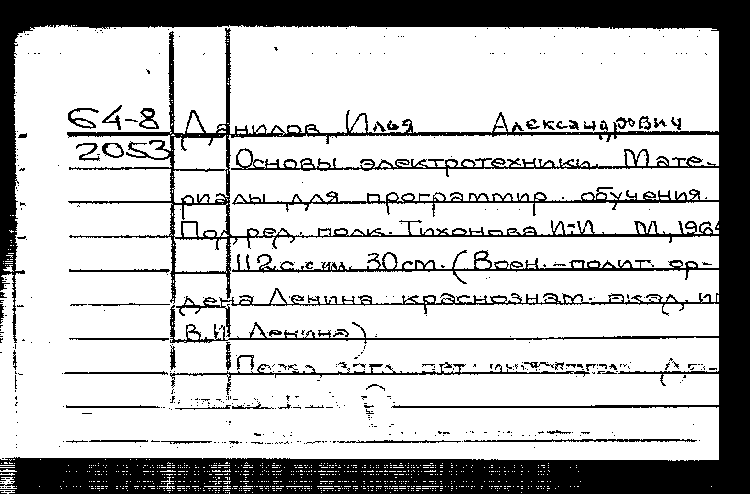 64-8 Данилов, Илья Александрович
2053 Основы электротехники. Мате-
риалы для программир. обучения.
Под ред. полк. Тихонова И.И. М., 1964
112 с. с ил. 30 см. (Воен.-полит. ор-
дена Ленина краснознам. акад. им
В.И. Ленина)
Перед загл. авт.